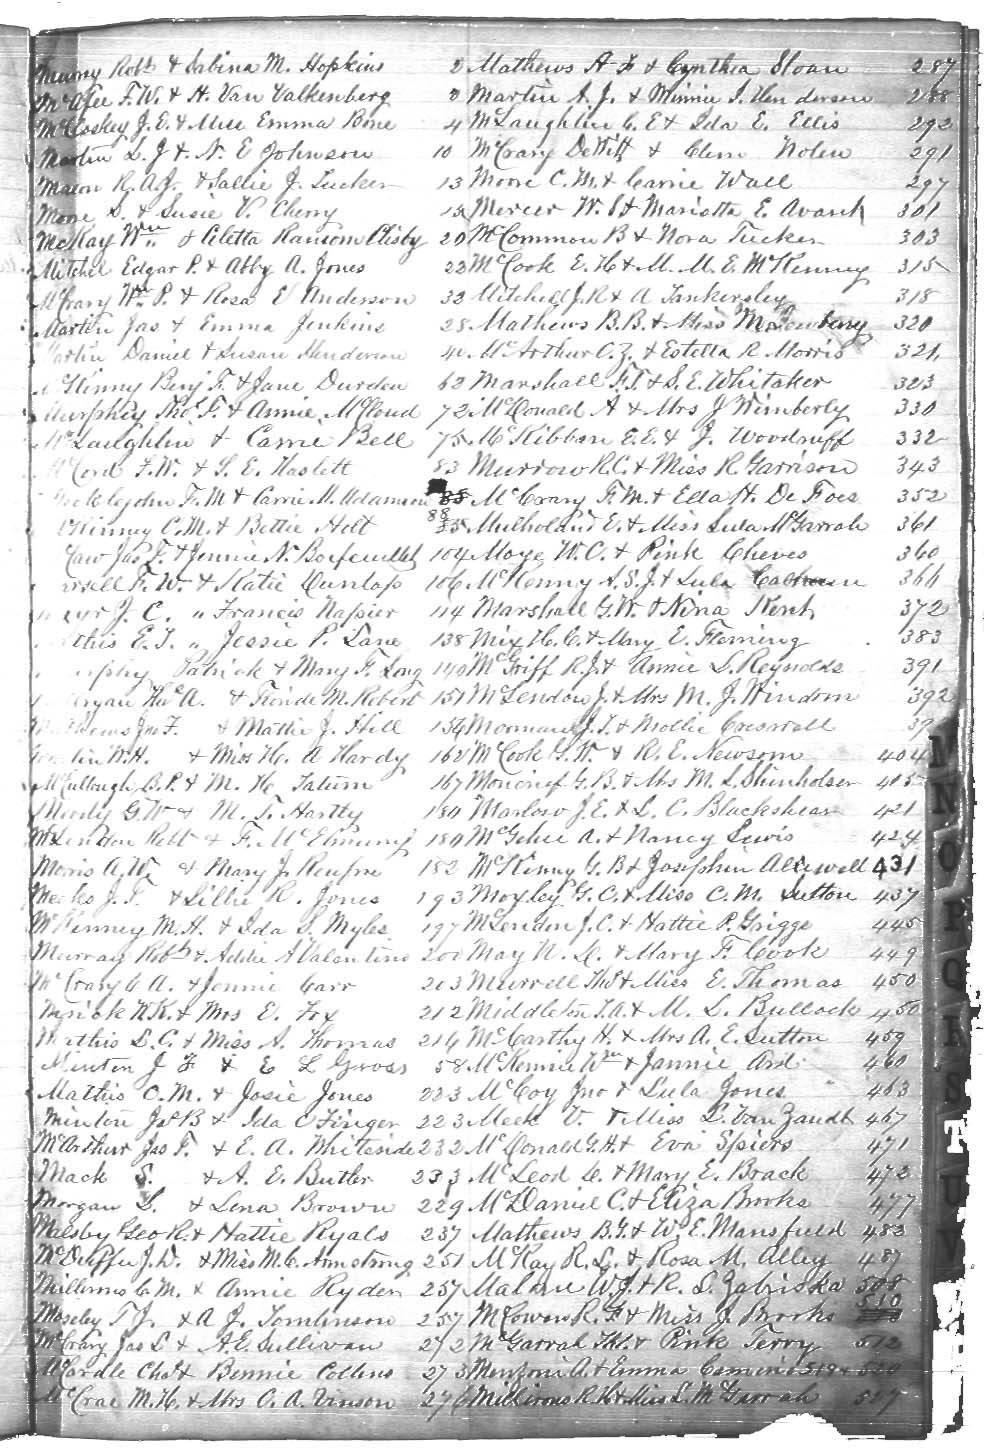 Robt & Sabina M. Hopkins 2
McAfee F. W. & H. Van Valkenberg 2
McCoskey J. E. & Miss Emma Bone 4
Martin L. J & N. E Johnson 10
Mason R. A. J. & Sallie J. Tucker 13
Moore S. & Susie V. Cherry
McKay Wm & Aletta Ransom Clisby 20
Mitchel Edgar P. & Abby A. Jones 22
McCrary Wm P. & Rosa E Anderson 32
Martin Jas & Emma Jenkins 28
Martin Daniel & Susan Henderson 40
McKinny Benj F. & Jane Durden 62
Murphey Thos F. & Annie McCloud 72
McLaughlin & Carrie Bell 75
McCord F. W. & S. E. Haslett 83
F. M & Carrie M. Adamson 85
McKinney C. M. & Bettie Holt 88
McCaw Jas F. & Jennie N. Boifeuillet 104
F. W. & Katie Dunlap 106
J. C. " Francis Napier 114
Mathis E. T. " Jessie P. Lane 138
Murphy Patrick & Mary F. Long 140
Morgan Thos A. & M. Robert 151
Mathews Jno F. & Mattie J. Hill 154
W. H. & Miss H. A Hardy 162
McCullough B. P. & M. H. Tatum 167
Moody G. W & M. T. Hartley 180
McLendon Robt & F. McElmurry 180
Morris A. W. & Mary J. Renfroe 182
Meeks J. T. & Lillie R. Jones 193
McKinney M. H. & Ida S. Myles 197
Murray Robt & Addie A Valentino 200
McCrary C A. & Jennie Carr 203
Myrick W. K. & Mrs E. Fox 212
Mathis L. C. & Miss A. Thomas 216
Minton J F & E L Gross 58
Mathis C. M. & Josie Jones 223
Minton Jas B & Ida C Finger 223
McArthur Jas F. & E. A. Whiteside 232
Mack S. & A. E. Butler 233
Morgan S. & Lena Brown 229
Malsby Geo R. & Hattie Ryals 237
McDuffie J. D. & Miss M. C. Armstrong 251
Millirons C. M. & Annie Ryden 257
Moseley T J. & A J. Tomlinson 257
McCrary Jas S & A. E. Sullivan 272
McCardle Chas & Bennie Collins 273
McCrae M. H. & Mrs O. A. Vinson 276
Mathews A F & Cynthia Sloan 287
Martin A. J. & Minnie I. Henderson 288
McLaughlin C. E & Ida E. Ellis 292
McCrary DeWitt & Clem Nolen 291
Moore C. M. & Carrie Wall 297
Mercer W. S & Marietta E. Avant 301
McCommon B & Nora Tucker 303
McCook E. H & M. M. E. McKenney 315
Mitchell J. R & A Tankersley 318
Mathews B. B. & Miss M Newberry 320
McArthur C. Z. & Estella R Morris 321
Marshall G. T. & S. E. Whitaker 323
McDonald A & Mrs J Wimberly 330
McKibbon E. E. & J. Woodruff 332
Murrow R. C. & Miss R. Garrison 343
McCrary F. M. & Ella H. De Foes 352
Mulholand E. & Miss Lula McGarrah 361
Maye W. C. & Pink Cheves 360
McKenny A. S. J. & Lula Calhoun 366
Marshall G. W. & Nina Kent 372
Mix H. C. & Mary E. Fleming 383
McGriff R. J. & Annie L. Reynolds 391
McLendon J. & Mrs M. J. Windom 392
Moorman J. T. & Mollie Creswell 39
McCook G. W. & R. E. Newsom 404
Moncrief G. B. & Mrs M. L. Shinholser 405
Marlow J. E. & L. C. Blackshear 421
McGehee A. & Nancy Lewis 424
McKinny G. B & Josephin Allewell 431
Moxley G. C. & Miss C. M. Sutton 437
McLendon J. C. & Hattie P. Griggs 445
May N. L. & Mary F. Cook 449
Murrell Thos & Miss E. Thomas 450
Middleton T. A. & M. L. Bullock 450
McCarthy H. & Mrs A. E. Sutton 459
McKennie Wm & Jannie Ard 460
McCoy Jno & Lula Jones 463
Meek V. & Miss L. Van Zandt 467
McDonald G. H & Eva Spiers 471
McLeod C. & Mary E. Brack 472
McDaniel C. & Eliza Brooks 477
Mathews B. F. & W. E. Mansfield 482
McKay R. L. & Rosa M. Alley 487
Malone W. J. & R. L. Zabriska 508
McCowen R. F. & Miss J. Brooks 510
McGarrah Thos. & Pink Terry 512
Menzoni A. & Emma 520
Millirons R. H & Miss L. McGarrah 527
M
N
O
P
Q
R
S
T
U
V